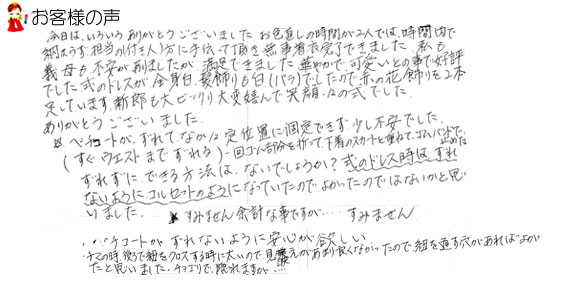 お客様の声
今日は、いろいろありがとうございました。お色直しの時間が2人では、時間内で
納まらず、担当の(付き人)方に手伝って頂き無事着完了できました。私も
義母も不安が有りましたが、満足できました。華やかで、可愛いとの事で好評
でした。式のドレスが全身白、髪飾りも白(バラ)でしたので、赤の花飾りを2本
足しています。新郎も大ビックリ大変嬉んで笑顔々の式でした。
ありがとうございました。
ペチコートが、ずれてなかなか定位置に固定できず少し不安でした。
(すぐウエストまでずれる)一回ゴム部分を折って下着のスカートと重ねてゴムバンドで、止めた
ずれずにできる方法は、ないでしょうか?式のドレス時は、ずれ
ないように、コルセットのようになっていたので、よかったのではないかと思
いました。 すみません余計な事ですが・・・・ すみません
・パチコートがずれないように安心が欲しい
チマの時、後ろで紐をクロスする時に太いので、見栄えがあまり良くなかったので、紐を通す穴があればよかっ
たと思いました。チョゴリで、隠れますが・・・